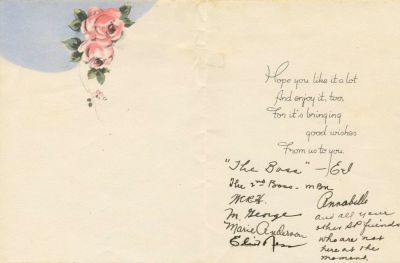 Hope you like it a lot
And enjoy it, too,
For it's bringing
good wishes
From us to you.
"The Boss" - Erl
The 2nd Boss -
M. George
Marie Anderson
Annabelle
and all your
other SP friends
who are not
here at the
moment.